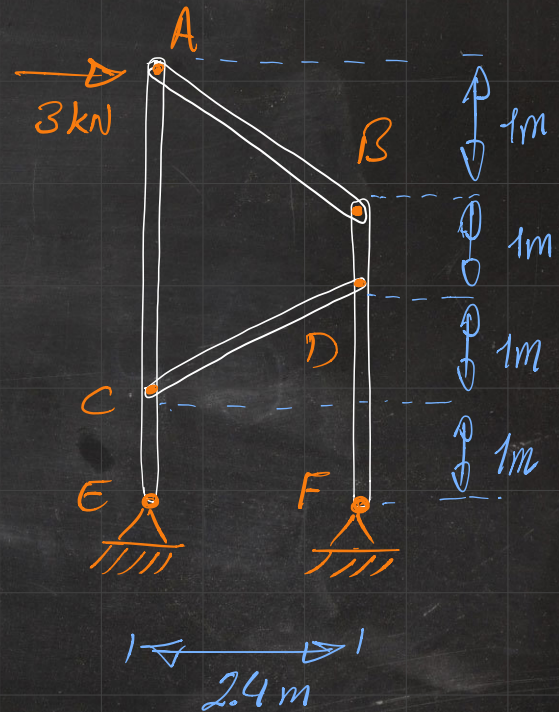 A
3 kN
B
1m
1m
D
1m
C
1m
E
F
2.4 m